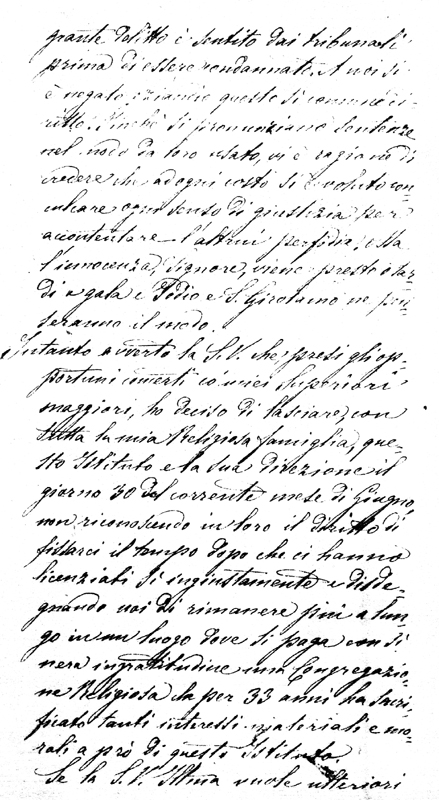 grante delitto è sentito dai tribunali
prima di essere condannati. A noi si
è negato eziandio questo sì comune di-
ritto. Finchè si pronunziano sentenze
nel modo da loro usato, vi è ragione di
credere che ad ogni costo si è voluto con-
culcare ogni senso di giustizia per
accontentare l'altrui perfidia; ma
l'innocenza, Signore, viene presto o tar-
di a gala e Iddio e S. Girolamo ne pen-
seranno il modo.
Intanto avverto la S.V. che, presi gli op-
portuni concerti co' miei Superiori
maggiori, ho deciso di lasciare, con
tutta la mia Religiosa famiglia, que-
sto Istituto e la sua direzione il
giorno 30 del corrente mese di Giugno,
non riconoscendo in loro il diritto di
fissarci il tempo dopo che ci hanno
licenziati sì ingiustamente e disde-
gnando noi di rimanere più a lun-
go in un luogo dove si paga con sì
nera ingratitudine una Congregazio-
ne Religiosa che per 33 anni ha sacri-
ficato tanti interessi materiali e mo-
rali a prò di questo Istituto.
Se la S.V. Ill.ma vuole ulteriori